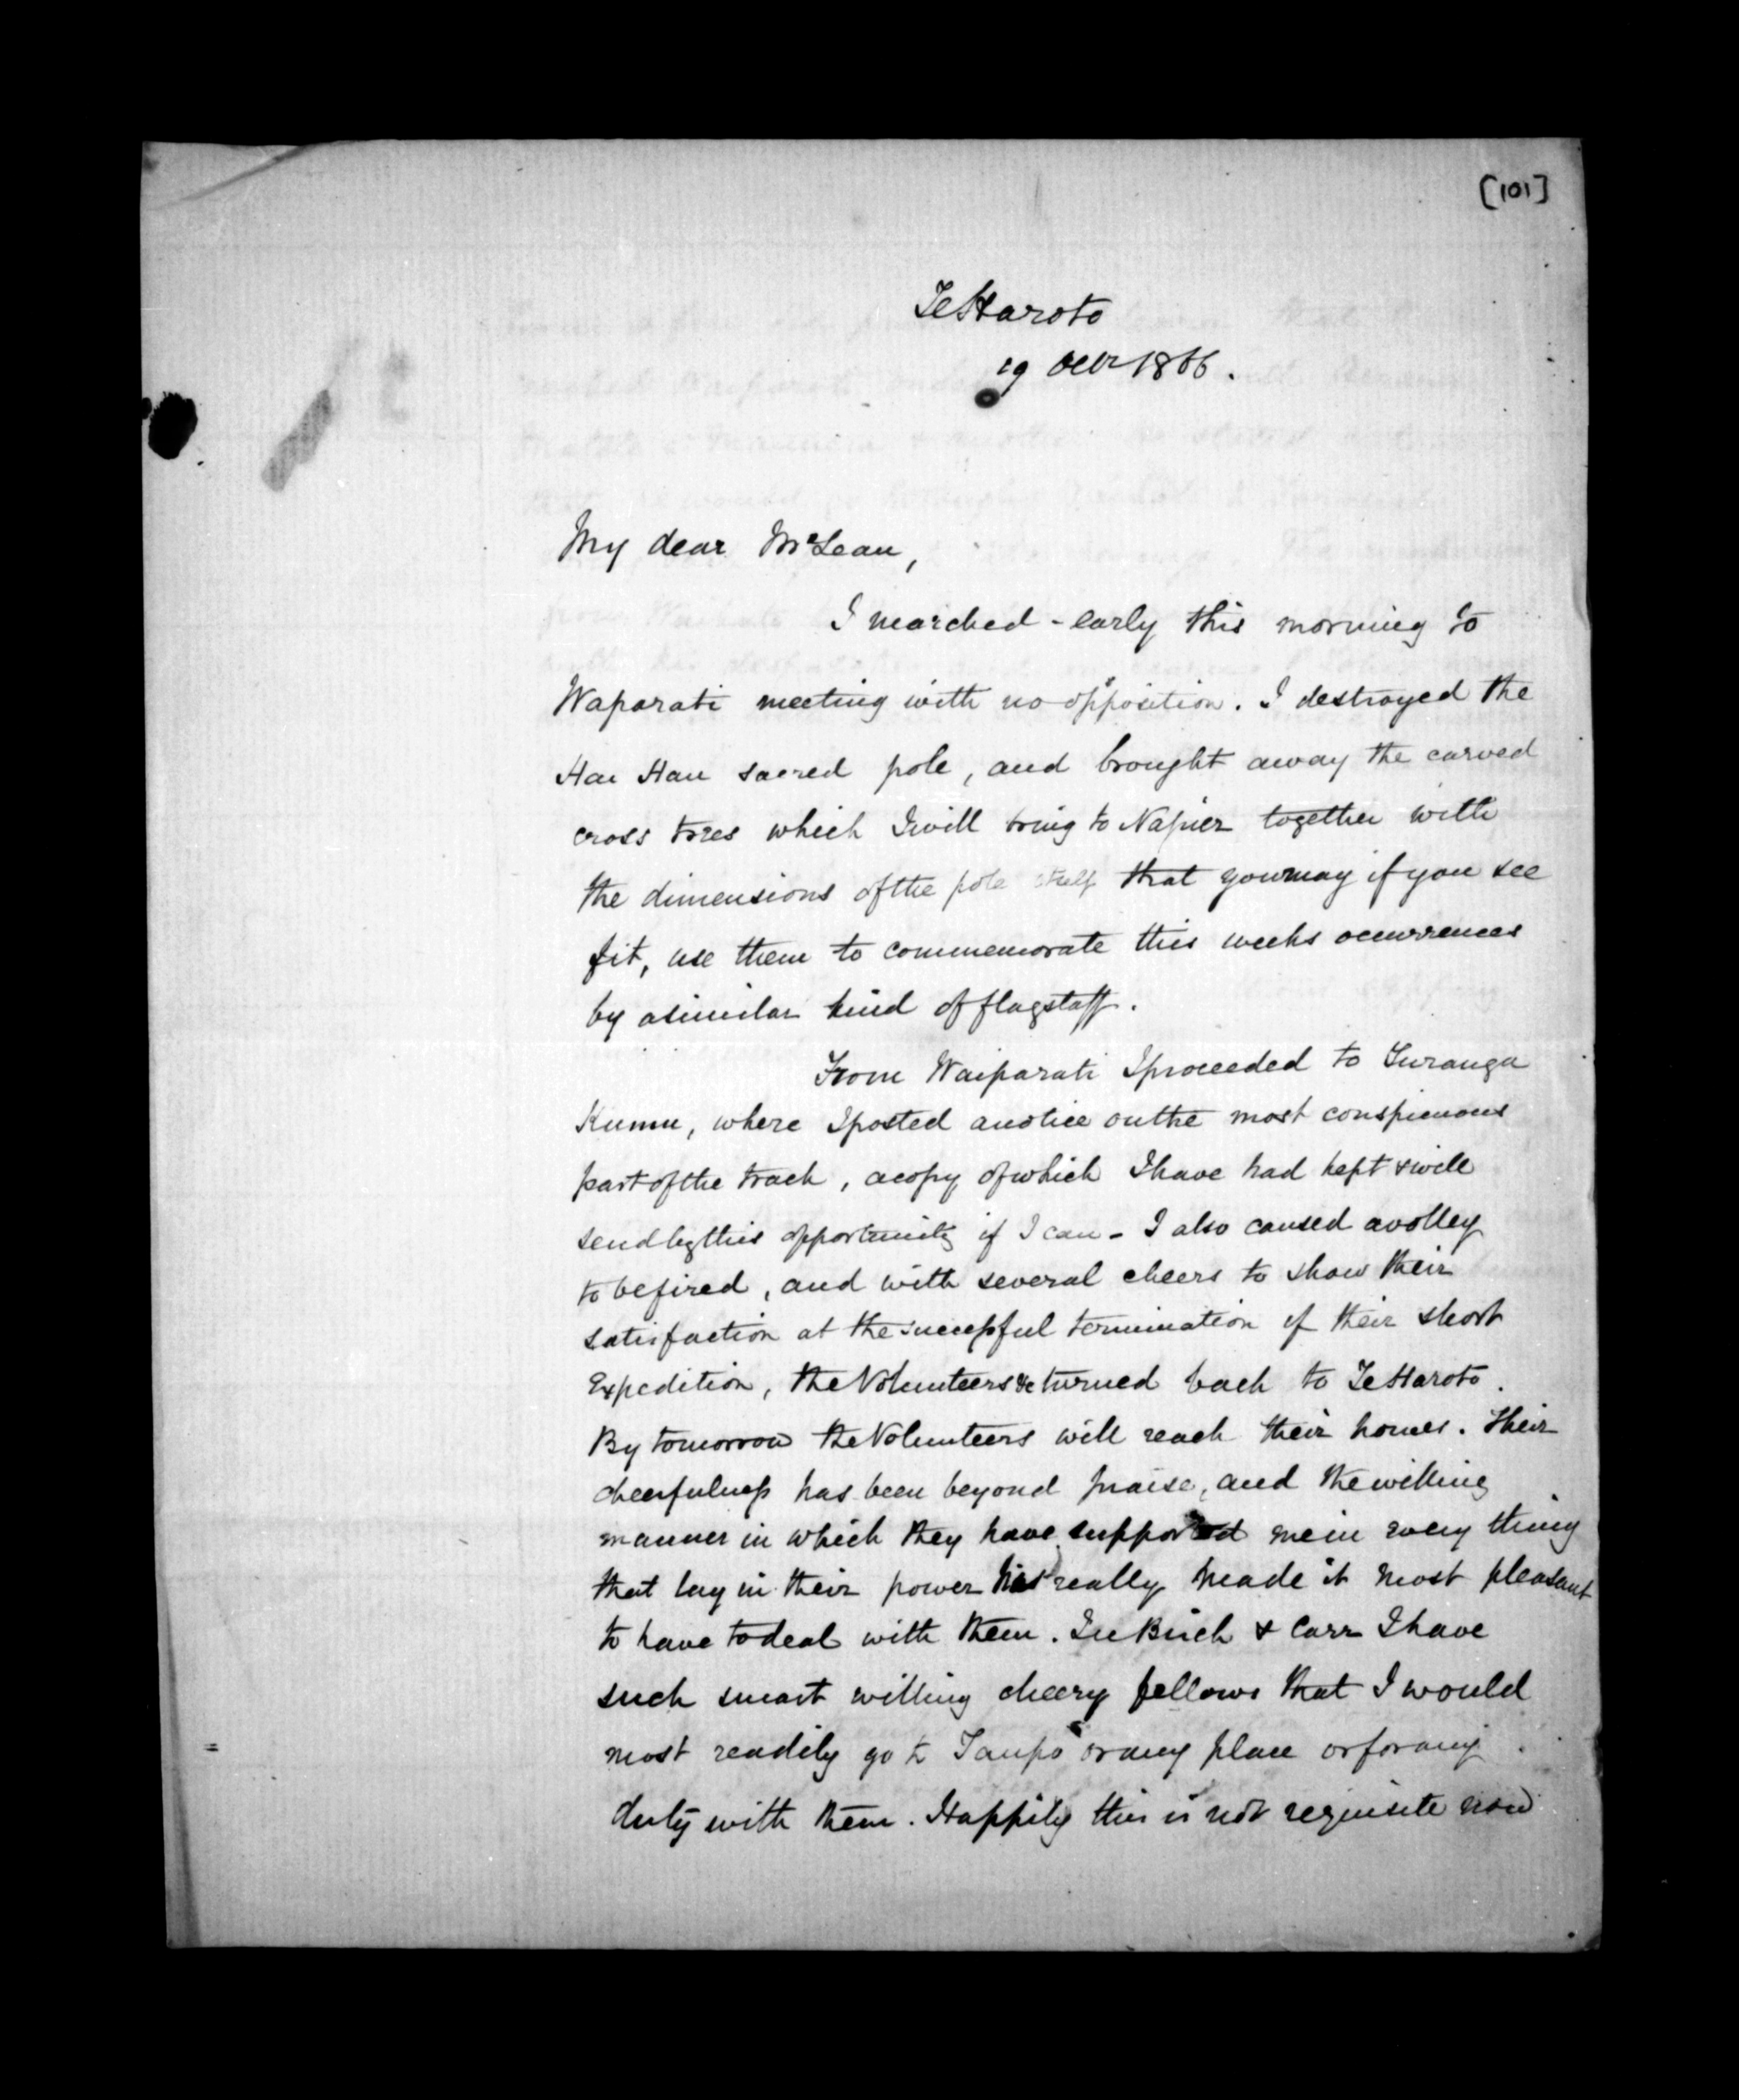 [101]
Te Haroto
19 Octr 1866.
My dear McLean,
I marched - early this morning to
Waparati meeting with no opposition. I destroyed the
Hau Hau sacred pole, and brought away the carved
cross trees which I will bring to Napier together with
the dimensions of the pole itself that you may if you see
fit, use them to commemorate this weeks occurrences
by a similar kind of flagstaff.
From Waiparati I proceeded to Turanga
Kumu, where I posted a notice on the most conspicuous
part of the track, a copy of which I have had kept & will
send by this opportunity if I can - I also caused a volley
to be fired, and with several cheers to show their
satisfaction at the successful termination of their short
Expedition, the Volunteers &c turned back to Te Haroto.
By tomorrow the Volunteers will reach their homes. Their
cheerfulness has been beyond praise, and the willing
manner in which they have supported me in every thing
that lay in their power has really made it most pleasant
to have to deal with them. In Birch & Carr I have
such smart willing cheery fellows that I would
most readily go to Taupo or any place or for any
duty with them. Happily this is not requisite now